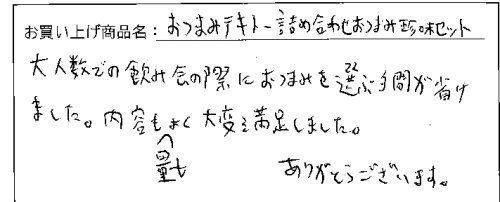 お買い上げ商品名：おつまみテキトー詰め合わせおつまみ珍味セット
大人数での飲み会の際におつまみを選ぶ手間が省け
ました。内容もよく大変満足しました。
量も
ありがとうございます。